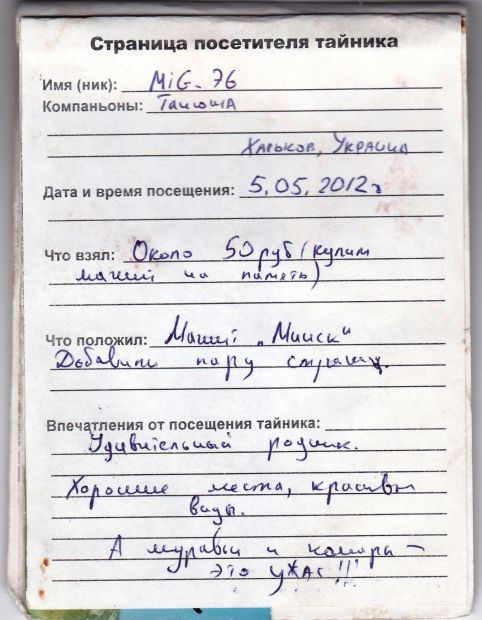 Страница посетителя тайника
Имя (ник): MiG-76
Компаньоны: Танюша
Харьков, Украина
Дата и время посещения: 5.05.2012г
Что взял: Около 50 руб (купим
магнит на память)
Что положил: Магнит „Минск“
Добавили пару страниц.
Впечатления от посещения тайника:
Удивительный родник.
Хорошие места, красивые
виды.
А муравьи и комары –
это ужас!!!